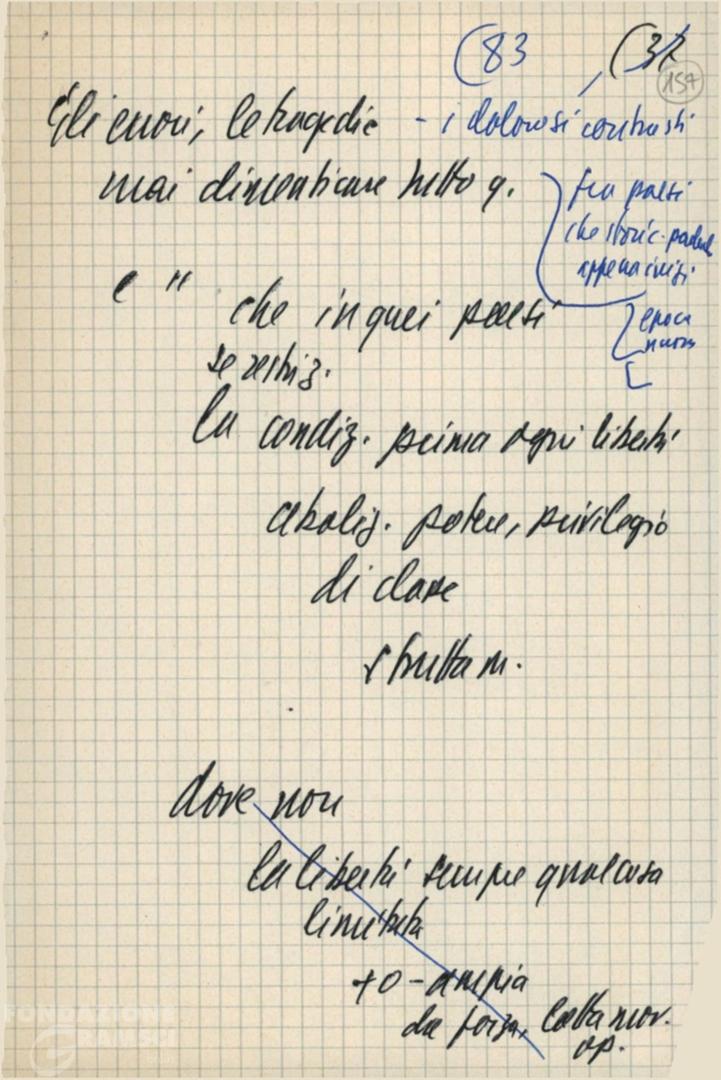 (83 (32
154
Gli errori, le tragedie - i dolorosi contrasti
mai dimenticare tutto q.
fra paesi
che storic.
appena inizi
epoca
nuova
e " che in quei paesi
se realizz.
la condiz. prima ogni libertà
aboliz. potere, privilegio
di classe
sfruttam.
dove non
la libertà sempre qualcosa
limitata
+ o - ampia
da forza, lotta mov.
op.
FONDAZIONE
GRAMSCI